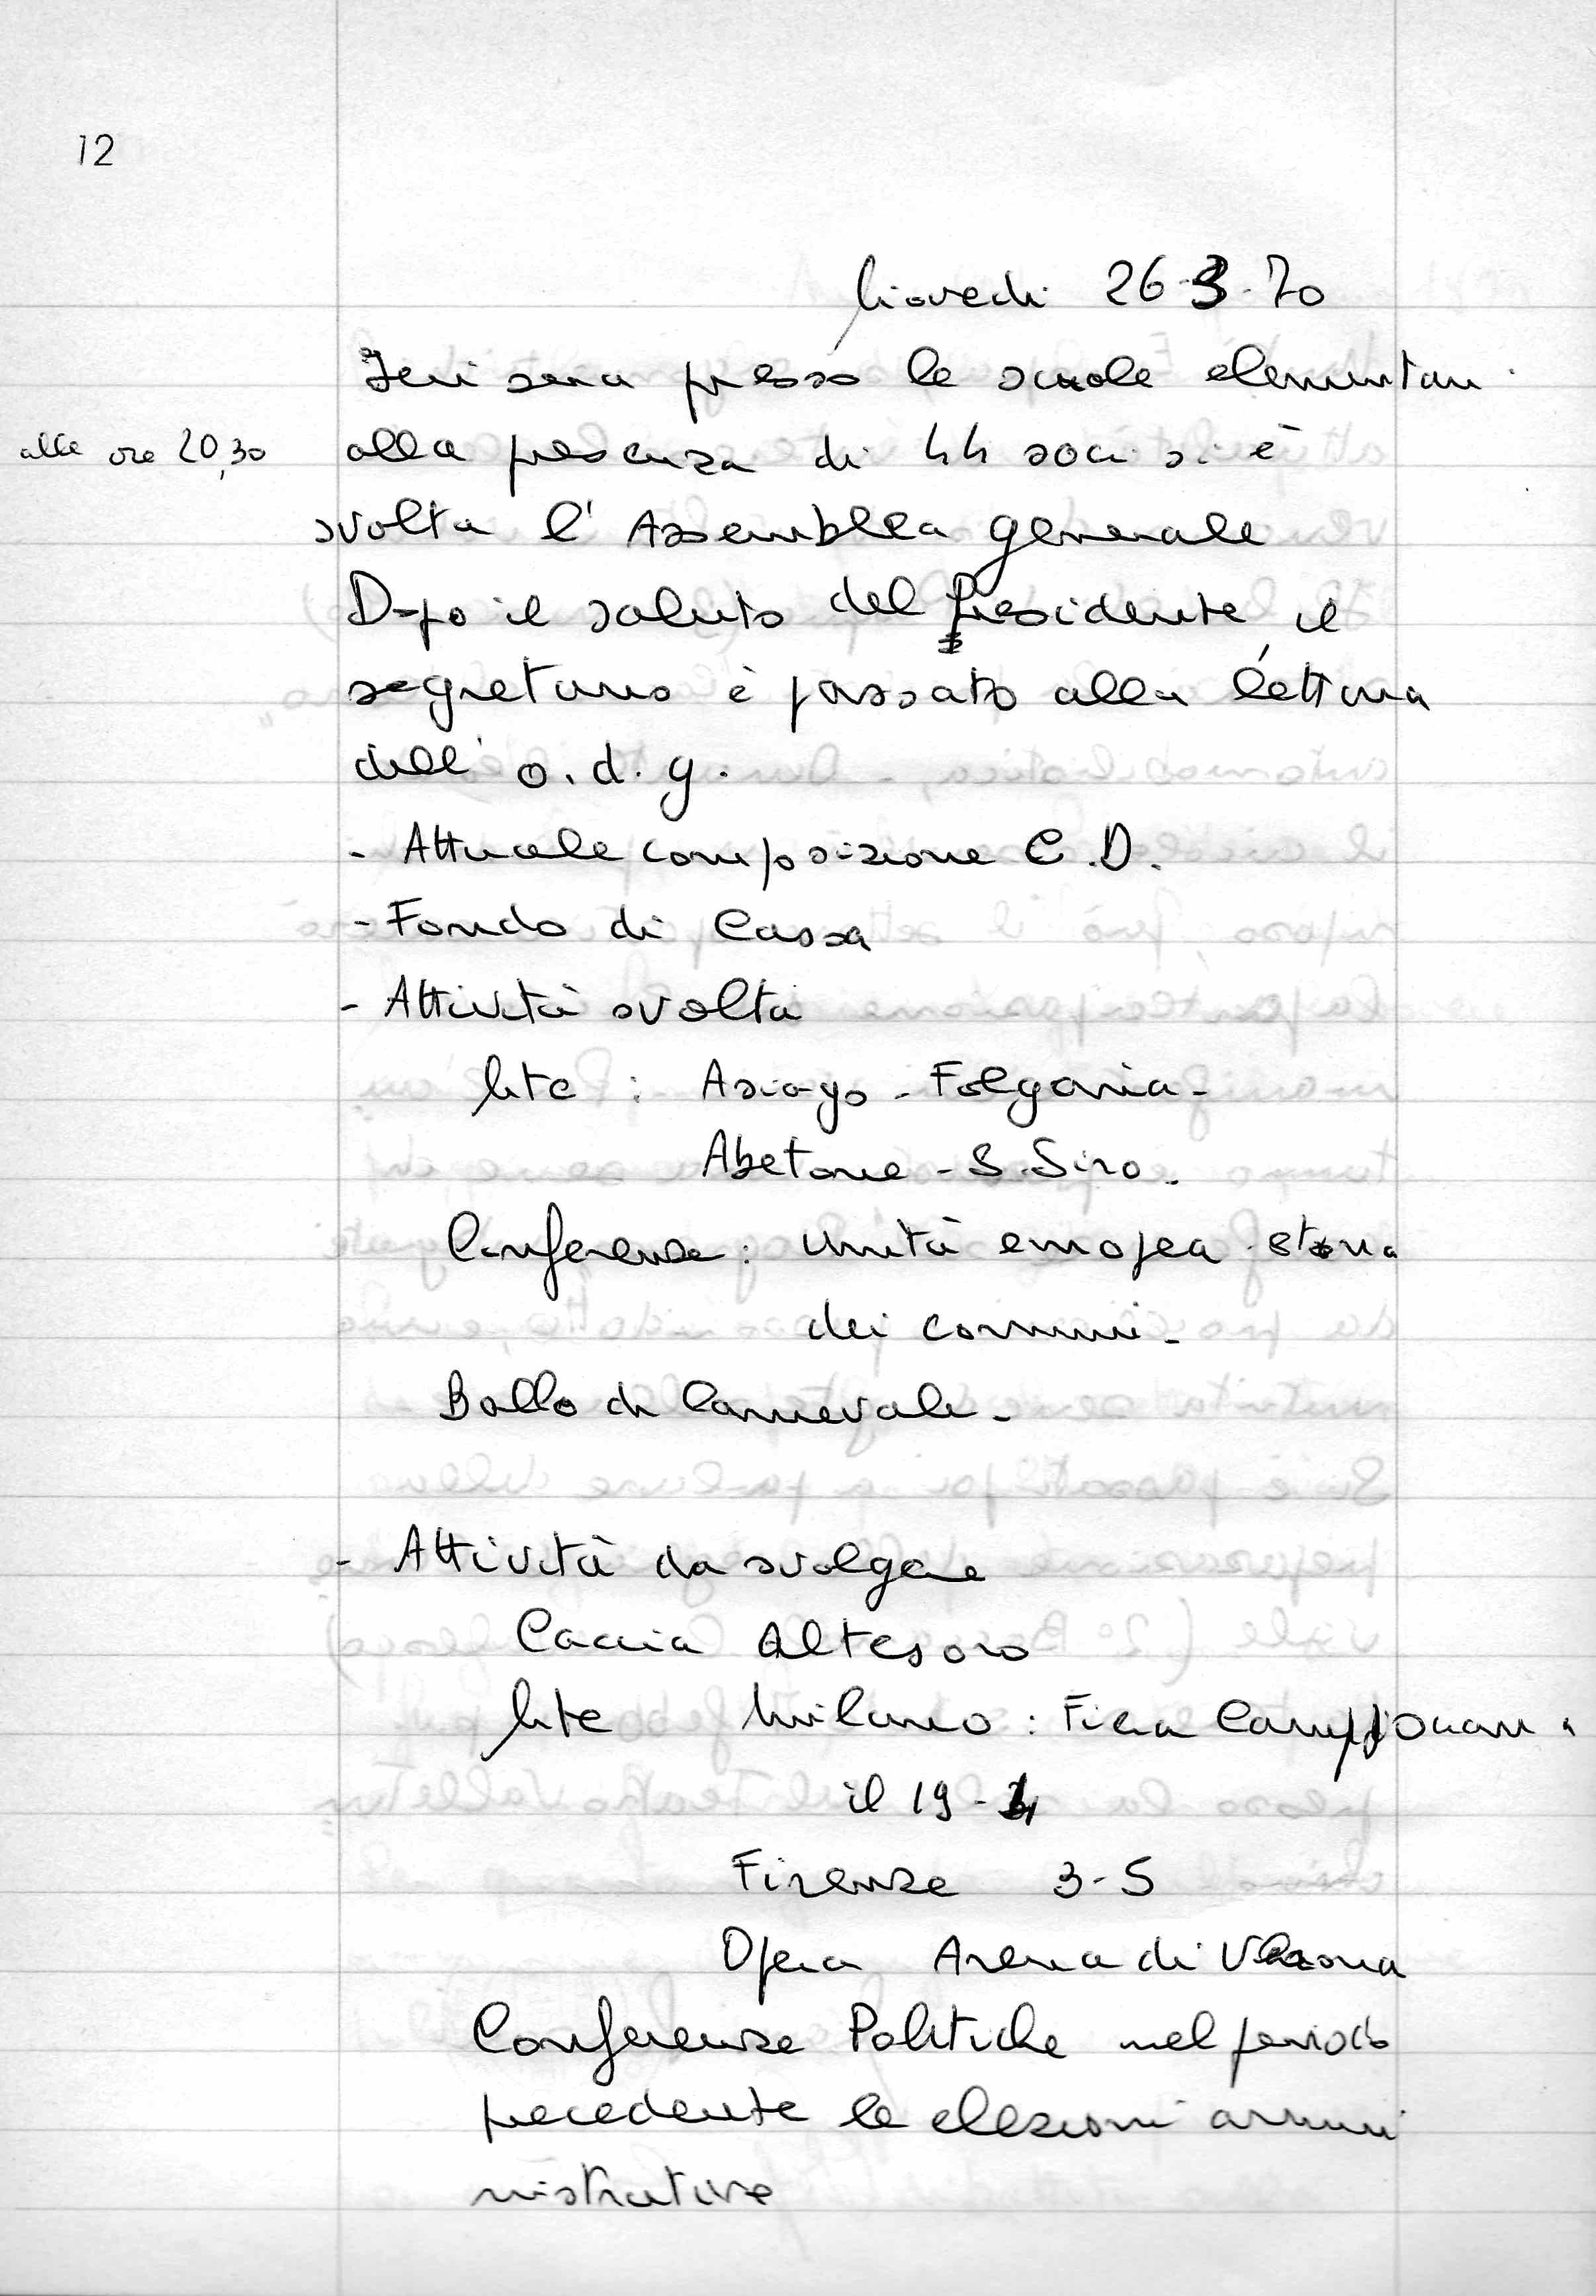 12
Giovedì 26-3-70
Ieri sera presso le scuole elementari
alle ore 20,30
alla presenza di 44 soci si è
svolta l'Assemblea generale
Dopo il saluto del Presidente, il
segretario è passato alla lettura
dell'o.d.g.
- Attuale composizione C.D.
- Fondo di Cassa
- Attività svolta
Gite : Asiago - Folgaria -
Abetone - S. Siro -
Conferenze : Unità europea - storia
dei comuni -
Ballo di Carnevale -
- Attività da svolgere
Caccia Al tesoro
Gite Milano : Fiera Campionaria
il 19-4
Firenze 3-5
Opera Arena di Verona
Conferenze Politiche nel periodo
precedente le elezioni ammi
nistrative